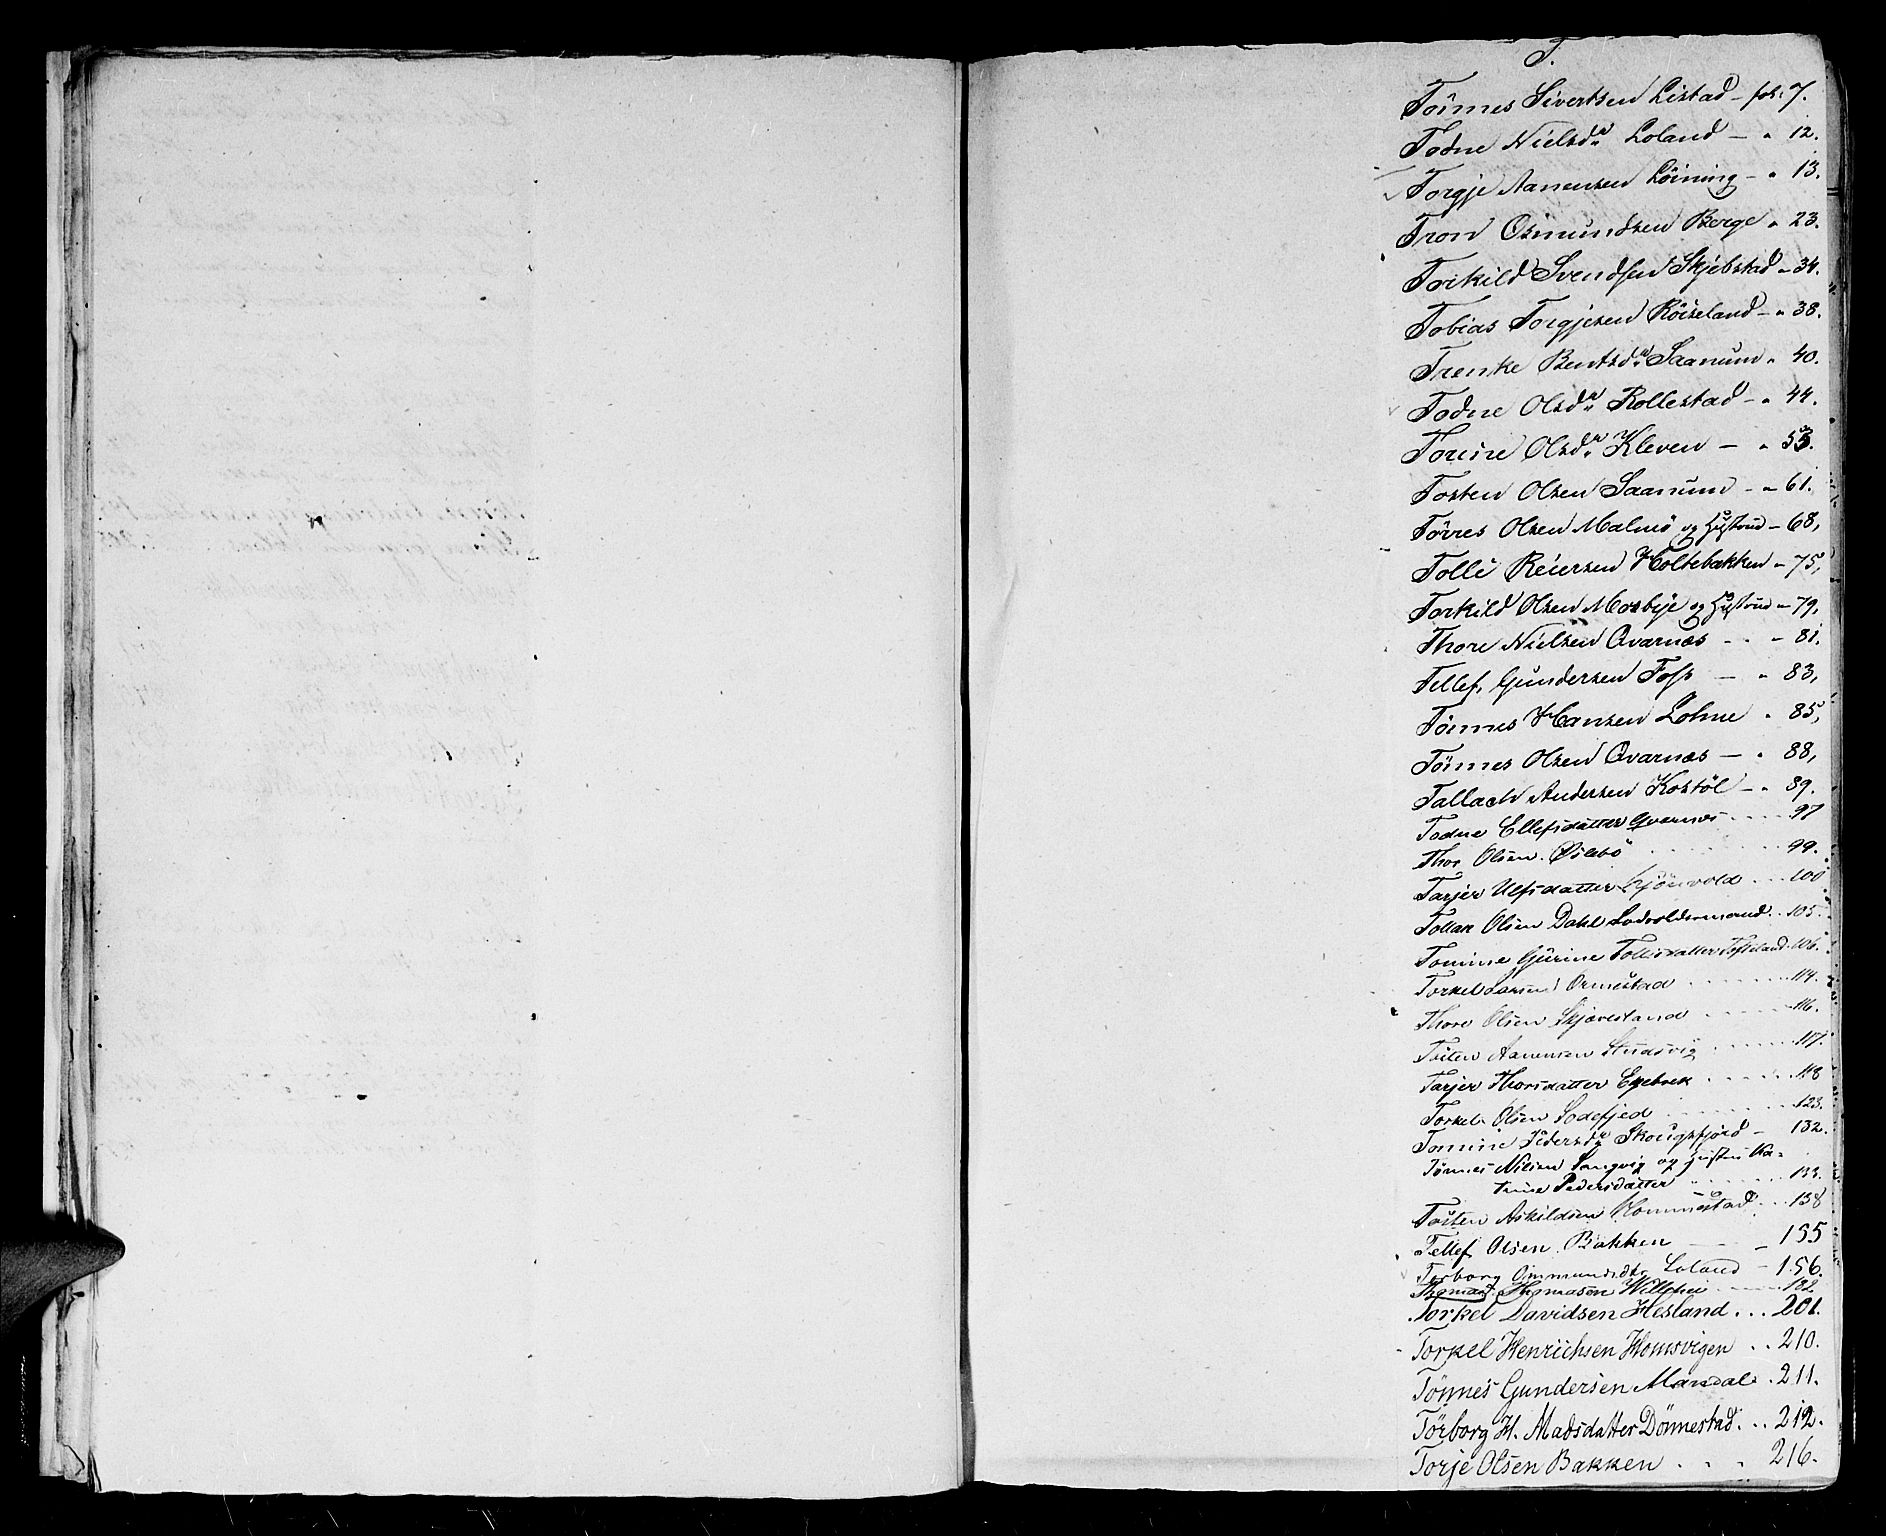 T.
Tönnes Sivertsen Listad – fol. 7.
Todne Nielsdr Loland – „ 12.
Torgje Aanensen Löining – „ 13.
Tron Osmundsen Berge „ 23.
Torkild Svendsen Skjebstad „ 34.
Tobias Torgjesen Röiseland – „ 38.
Trenke Bentsdr Saanum „ 40.
Todne Olsdr Rollestad – „ 44.
Torine Olsdr Kleven – „ 53.
Tosten Olsen Saanum – „ 61.
Törres Olsen Malmö og Hustrue – 68,
Tolli Reiersen Holtebakken – 75,
Torkild Olsen Mosbye og Hustrue – 79,
Thore Nielsen Qvarnæs - - – 81.
Tellef Gundersen Foss – „ 83,
Tönnes Hansen Lohne „ 85,
Tönnes Olsen Qvarnæs – „ 88,
Tallach Andersen Kostöl – „ 89.
Todne Ellefsdatter Qvarnæs .... 97
Thor Olsen Øslebö ..... 99.
Tarjer Ulfsdatter ... 100
Tollak Olsen Dahl .. 105.
Tomine Gurine Tollisdatter .106.
Torkel Larsen Ormestad ...... 114.
Thore Olsen Skjævestand ..... 116.
Tosten Aanensen Studsvig ...... 117.
Tarjer Thorsdatter Egebek ..... 118
Torkel Olsen Sodefjed ...... 123.
Tomine Pedersdr Skougsfjord – 132.
Tønnes Nilsen Sangvig og Hustru Ka=
trine Pedersdatter ...... 133.
Tosten Askildsen Hommestad .. 138
Tellef Olsen Bakken – 155
Torborg Ommundsdtr Loland – 156.
Thomas Thomasen 182
Torkel Davidsen Hesland ... 201.
Torkel Henrichsen Homsvigen .. 210.
Tönnes Gundersen Mandal . 211.
Törborg H. Madsdatter Dönnestad .. 212.
Torje Olsen Bakken . . . 216.